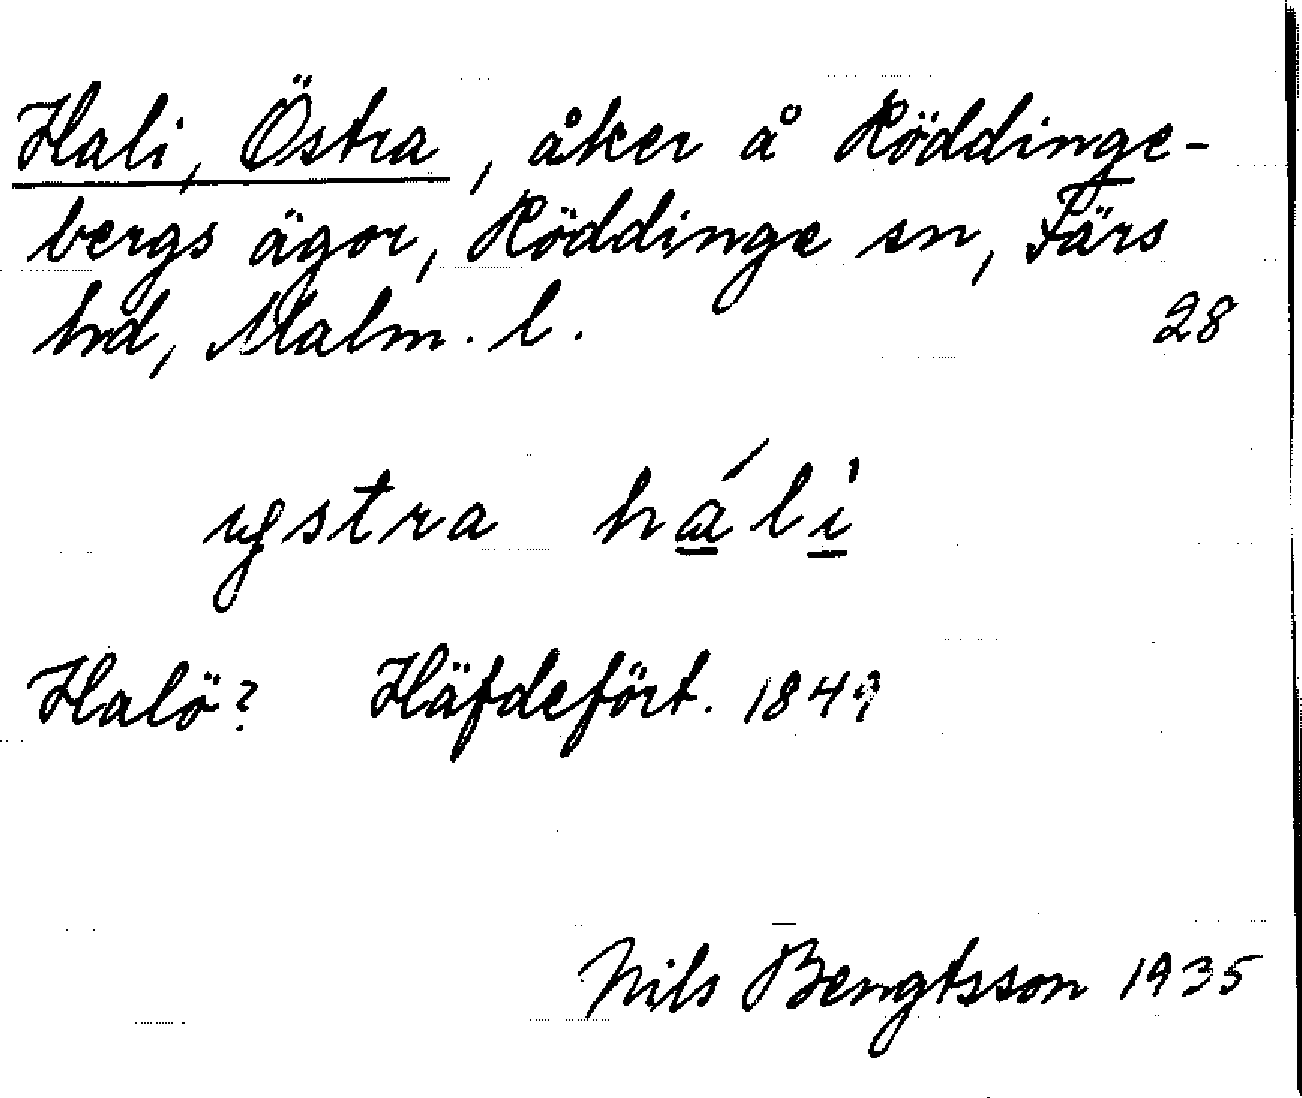 Hali, Östra, åker å Röddinge-
bergs ägor, Röddinge sn, Färs
hd, Malm. l. 28
ystra háli̍
Halö? Häfdefört. 1849
Nils Bengtsson 1935